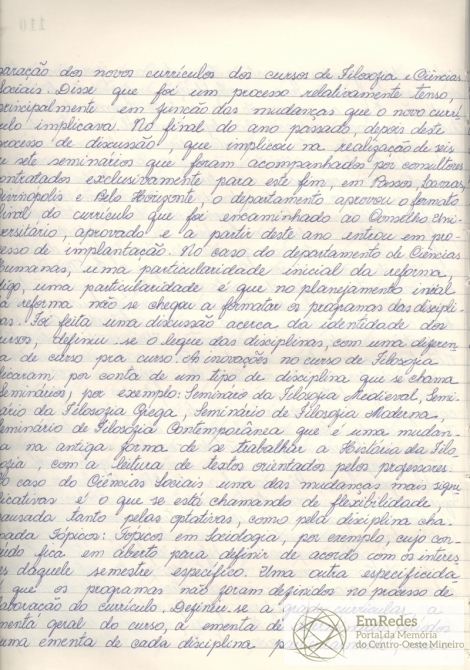 110
paração dos novos currículos dos cursos de Filosofia e Ciências
Sociais. Disse que foi um processo relativamente tenso,
principalmente em função das mudanças que o novo currí
culo implicava. No final do ano passado, depois deste
processo de discussão, que implicou na realização de seis
ou sete seminários que foram acompanhados por consultores
contratados exclusivamente para este fim, em Passos, Lavras,
Divinópolis e Belo Horizonte, o departamento aprovou o formato
final do currículo que foi encaminhado ao Conselho Uni-
versitário, aprovado e a partir deste ano entrou em pro-
cesso de implantação. No caso do departamento de Ciências
Humanas, uma particularidade inicial da reforma,
digo, uma particularidade é que no planejamento inicial
da reforma não se chegou a formatar os programas das discipli-
nas. Foi feita uma discussão acerca da identidade dos
cursos, definiu-se o leque das disciplinas, com uma diferen-
ça de curso pra curso. As inovações no curso de Filosofia
ficaram por conta de um tipo de disciplina que se chama
Seminários, por exemplo: Seminário da Filosofia Medieval, Semi
nário da Filosofia Grega, Seminário de Filosofia Moderna,
Seminário de Filosofia Contemporânea que é uma mudan-
ça na antiga forma de se trabalhar a História da Filo
sofia, com a leitura de textos orientados pelos professores.
No caso do Ciências Sociais uma das mudanças mais signi-
ficativas é o que se está chamando de flexibilidade,
causada tanto pelas optativas, como pela disciplina cha-
mada Tópicos: Tópicos em Sociologia, por exemplo, cujo con-
teúdo fica em aberto para definir de acordo com os interes-
ses daquele semestre específico. Uma outra especificida
é que os programas não foram definidos no processo de
elaboração do currículo. Definiu-se a grade curricular, a
ementa geral do curso, a ementa de
uma ementa de cada disciplina
EmRedes
Portal da Memória
do Centro-Oeste Mineiro